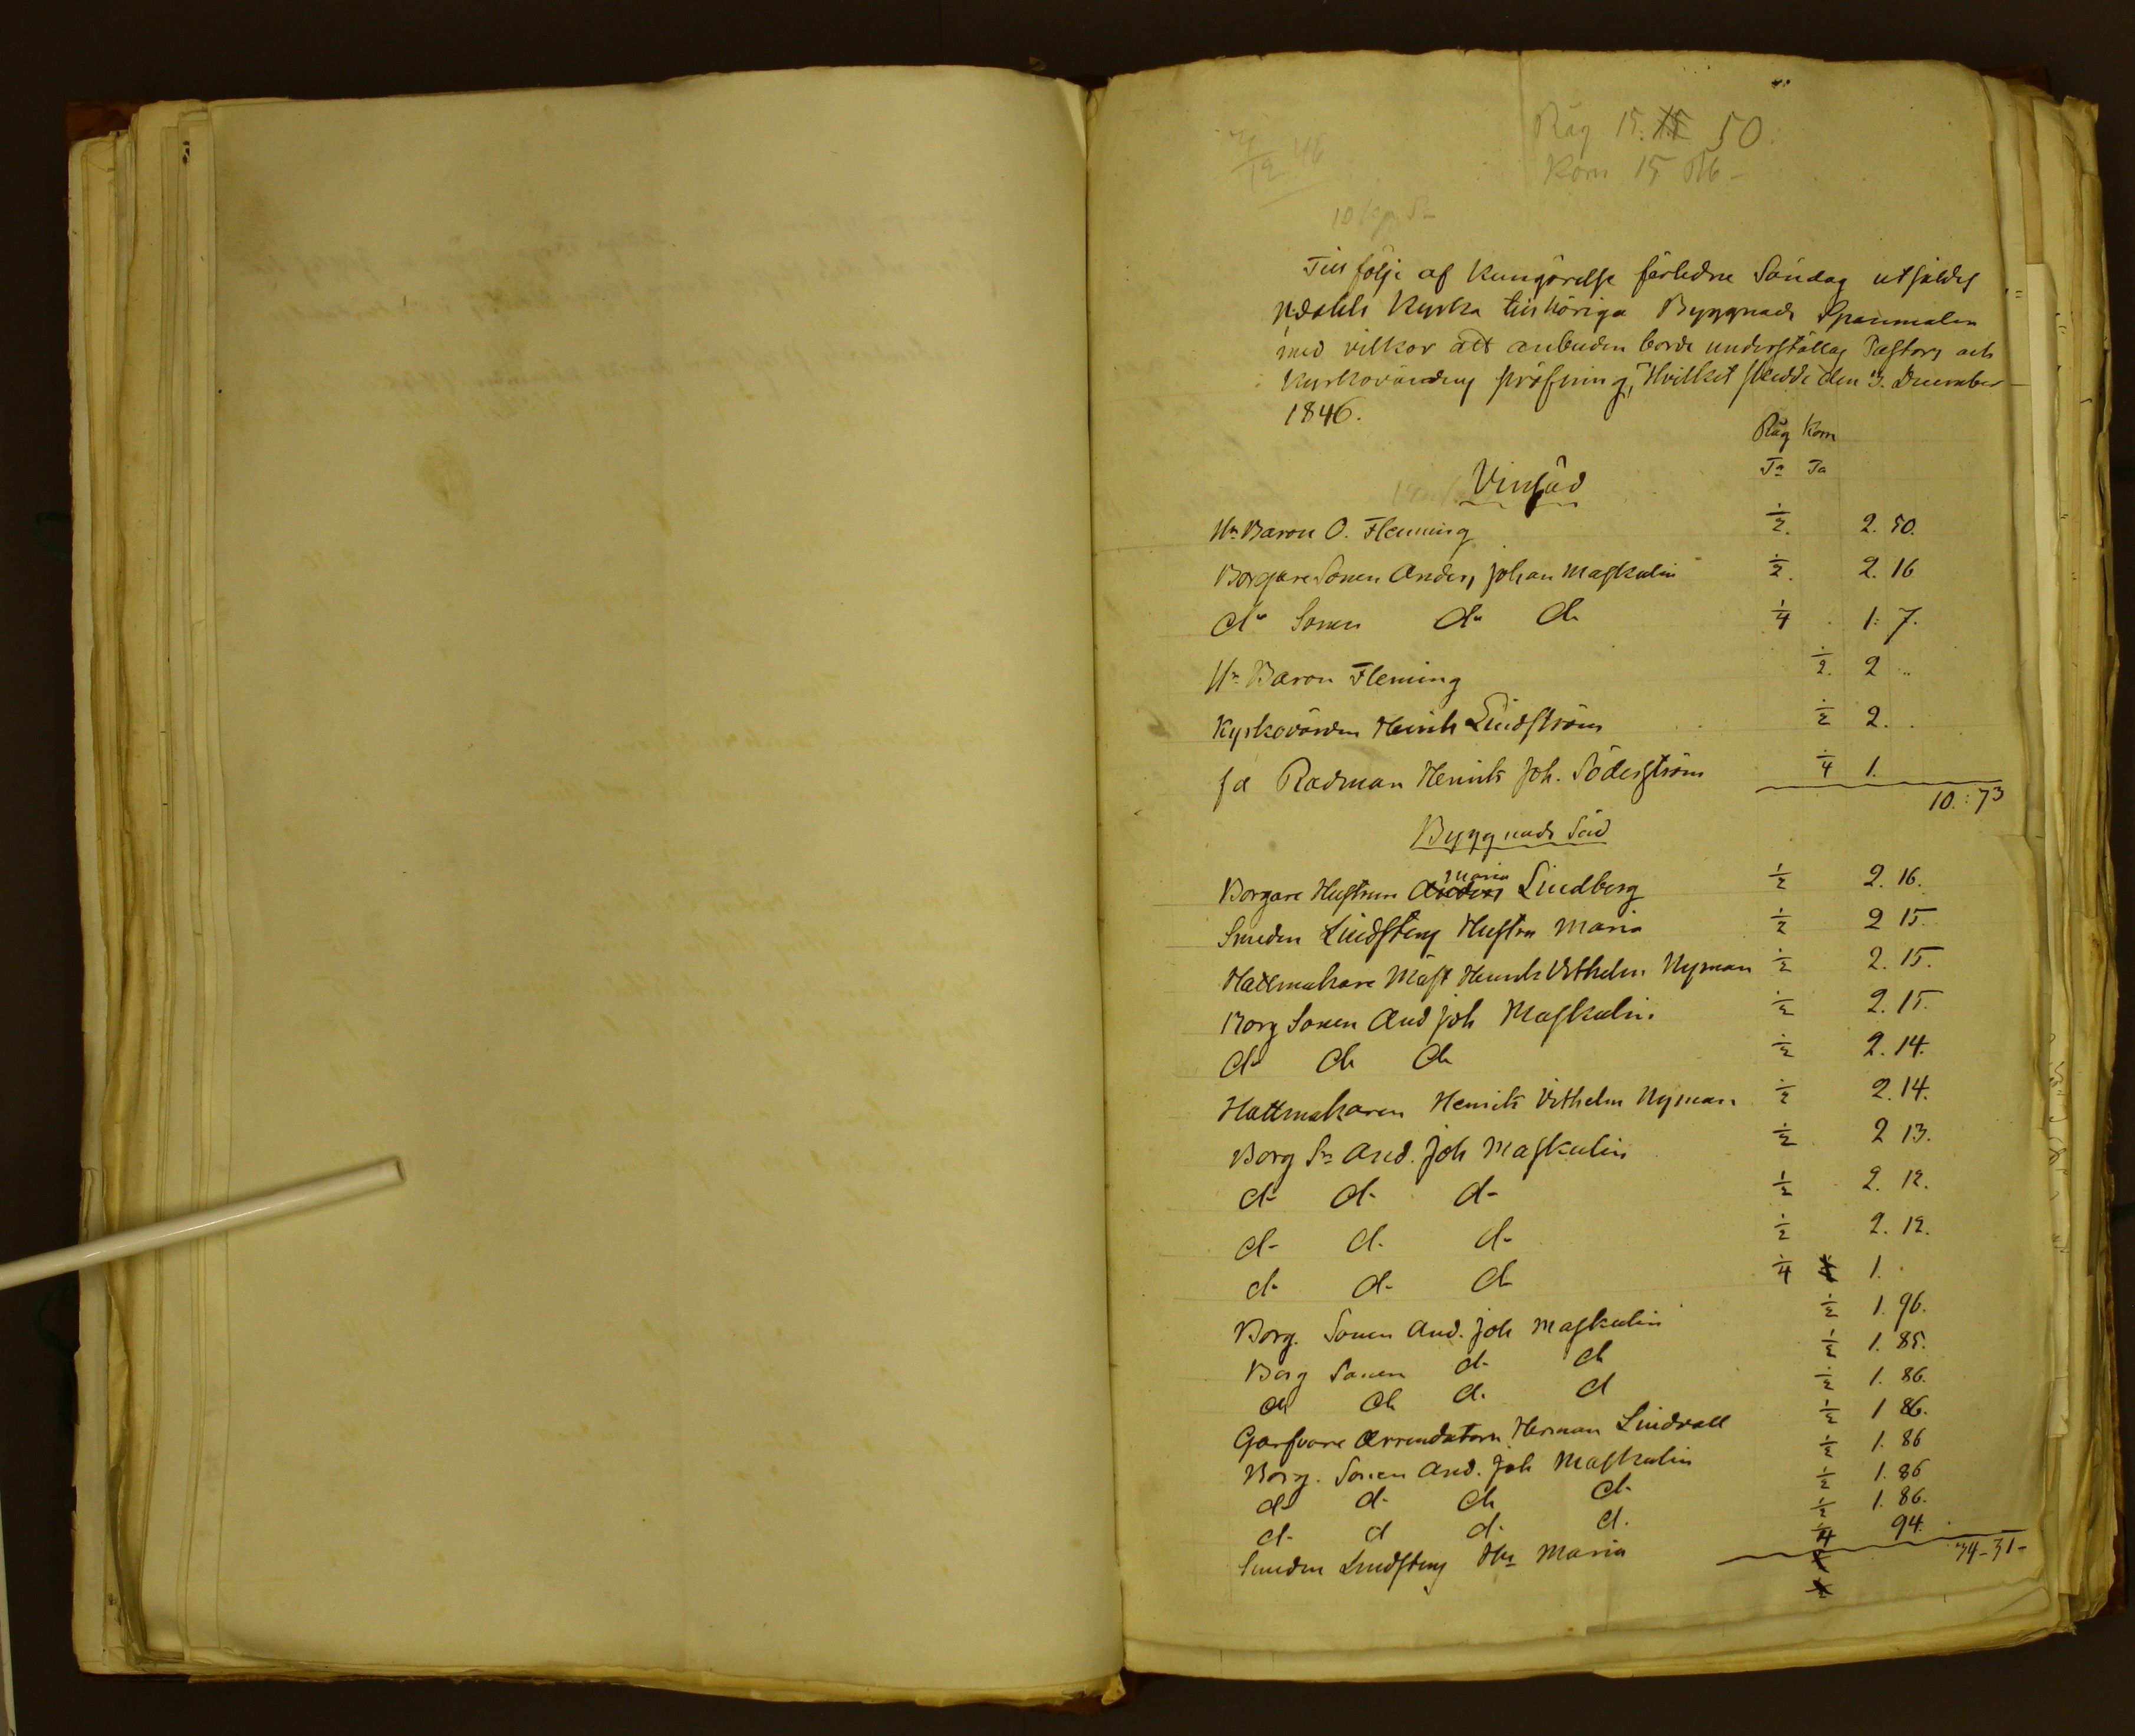 Råg 15. 50.
Korn 15 Rb-
12 46
Till följe af Kungörelse förledne Söndag utsåldes
Nådals Kyrka tillhöriga Byggnads Spanmålen
med vilkor att anbuden borde underställas Pastors och
Kyrkovärdens pröfning, Hvilket skedde den 13. December
1846.
Råg Korn
Ta Ta
Vinsäd
Hr Baron O. Fleming ½. 2. 50.
Borgare Sonen Anders Johan Maskulin ½. 2. 16
do Sonen do do ¼ 1: 7.
Hr Baron Fleming ½. 2 ..
Kyrkovärden Henrik Lindström ½ 2. .
fd Rådman Henrik Joh. Söderström ¼ 1.
10.:73
Byggnads Säd
Borgare Hustrun Anders Maria Lindberg ½ 2. 16.
Smeden Lindsteng Hustru Maria ½ 2 15.
Hattmakare Mäst Henrik Vilhelm Nyman ½ 2. 15.
Borg Sonen And Joh Maskulin ½ 2. 15.
do do do ½ 2. 14.
Hattmakaren Henrik Vilhelm Nyman ½ 2. 14.
Borg Sn And. Joh Maskulin ½ 2 13.
do do do ½ 2. 12.
do do do ½ 2. 12.
do do do ¼ 1. .
Borg. Sonen And. Joh Maskulin ½ 1. 96.
Borg Sonen do do ½ 1. 85.
do do do do ½ 1. 86.
Garfvare Arrendatorn Herman Lindvall ½ 1 86.
Borg. Sonen And. Joh Maskulin ½ 1. 86
do do do do ½ 1. 86
do do do do ½ 1. 86.
Smeden Lindsteng Hu Maria ¼ 94.
34-31-